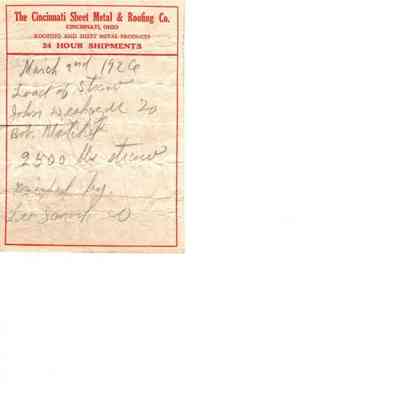 The Cincinnati Sheet Metal & Roofing Co.
CINCINNATI, OHIO
ROOFING AND SHEET METAL PRODUCTS
24 HOUR SHIPMENTS
March 2nd 1926
Load of Straw
John
Bob
2500 lbs straw
by
Leo